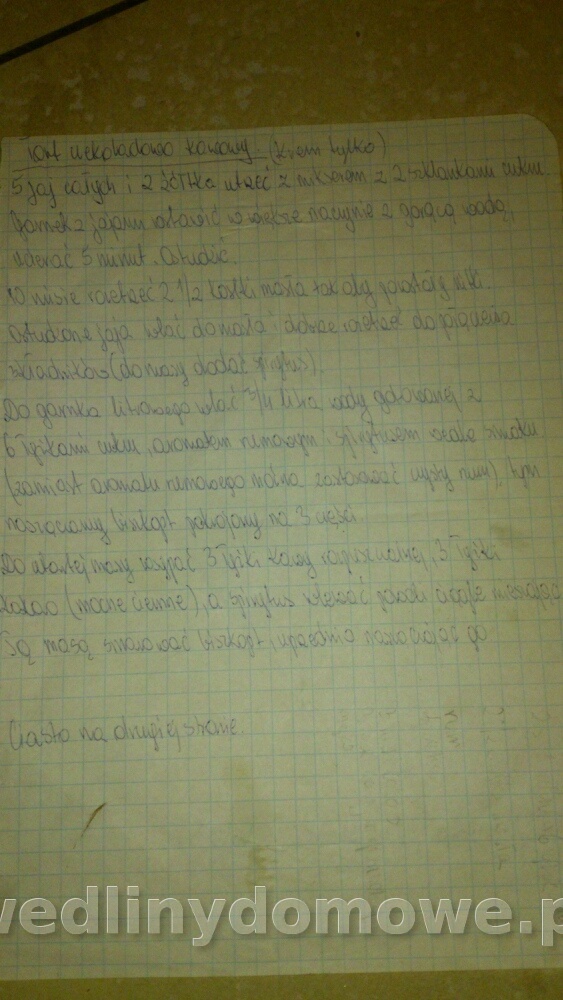 Tort czekoladowo kawowy (krem tylko)
5 jaj całych i 2 żółtka utrzeć z mikserem z 2 szklankami cukru
Garnek z jajami wstawić w większe naczynie z gorącą wodą,
ucierać 5 minut. Ostudzić.
W misie rozetrzeć 2 1/2 kostki masła tak aby powstały kitki.
Ostudzone jaja wlać do masła i dobrze rozetrzeć do połączenia
składników (do masy dodać spirytus).
Do garnka litrowego wlać 3/4 litra wody gotowanej z
6 łyżkami cukru, aromatem rumowym i spirytusem wedle smaku
(zamiast aromatu rumowego można zastosować czysty rum), tym
nasączamy biszkopt pokrojony na 3 części
Do utartej masy wsypać 3 łyżki kawy rozpuszczalnej, 3 łyżki
kakao (mocne ciemne), a spirytus wlewać powoli ciągle mieszając
Tą masą smarować biszkopt, uprzednio nasączając go
Ciasto na drugiej stronie.
wedlinydomowe.p